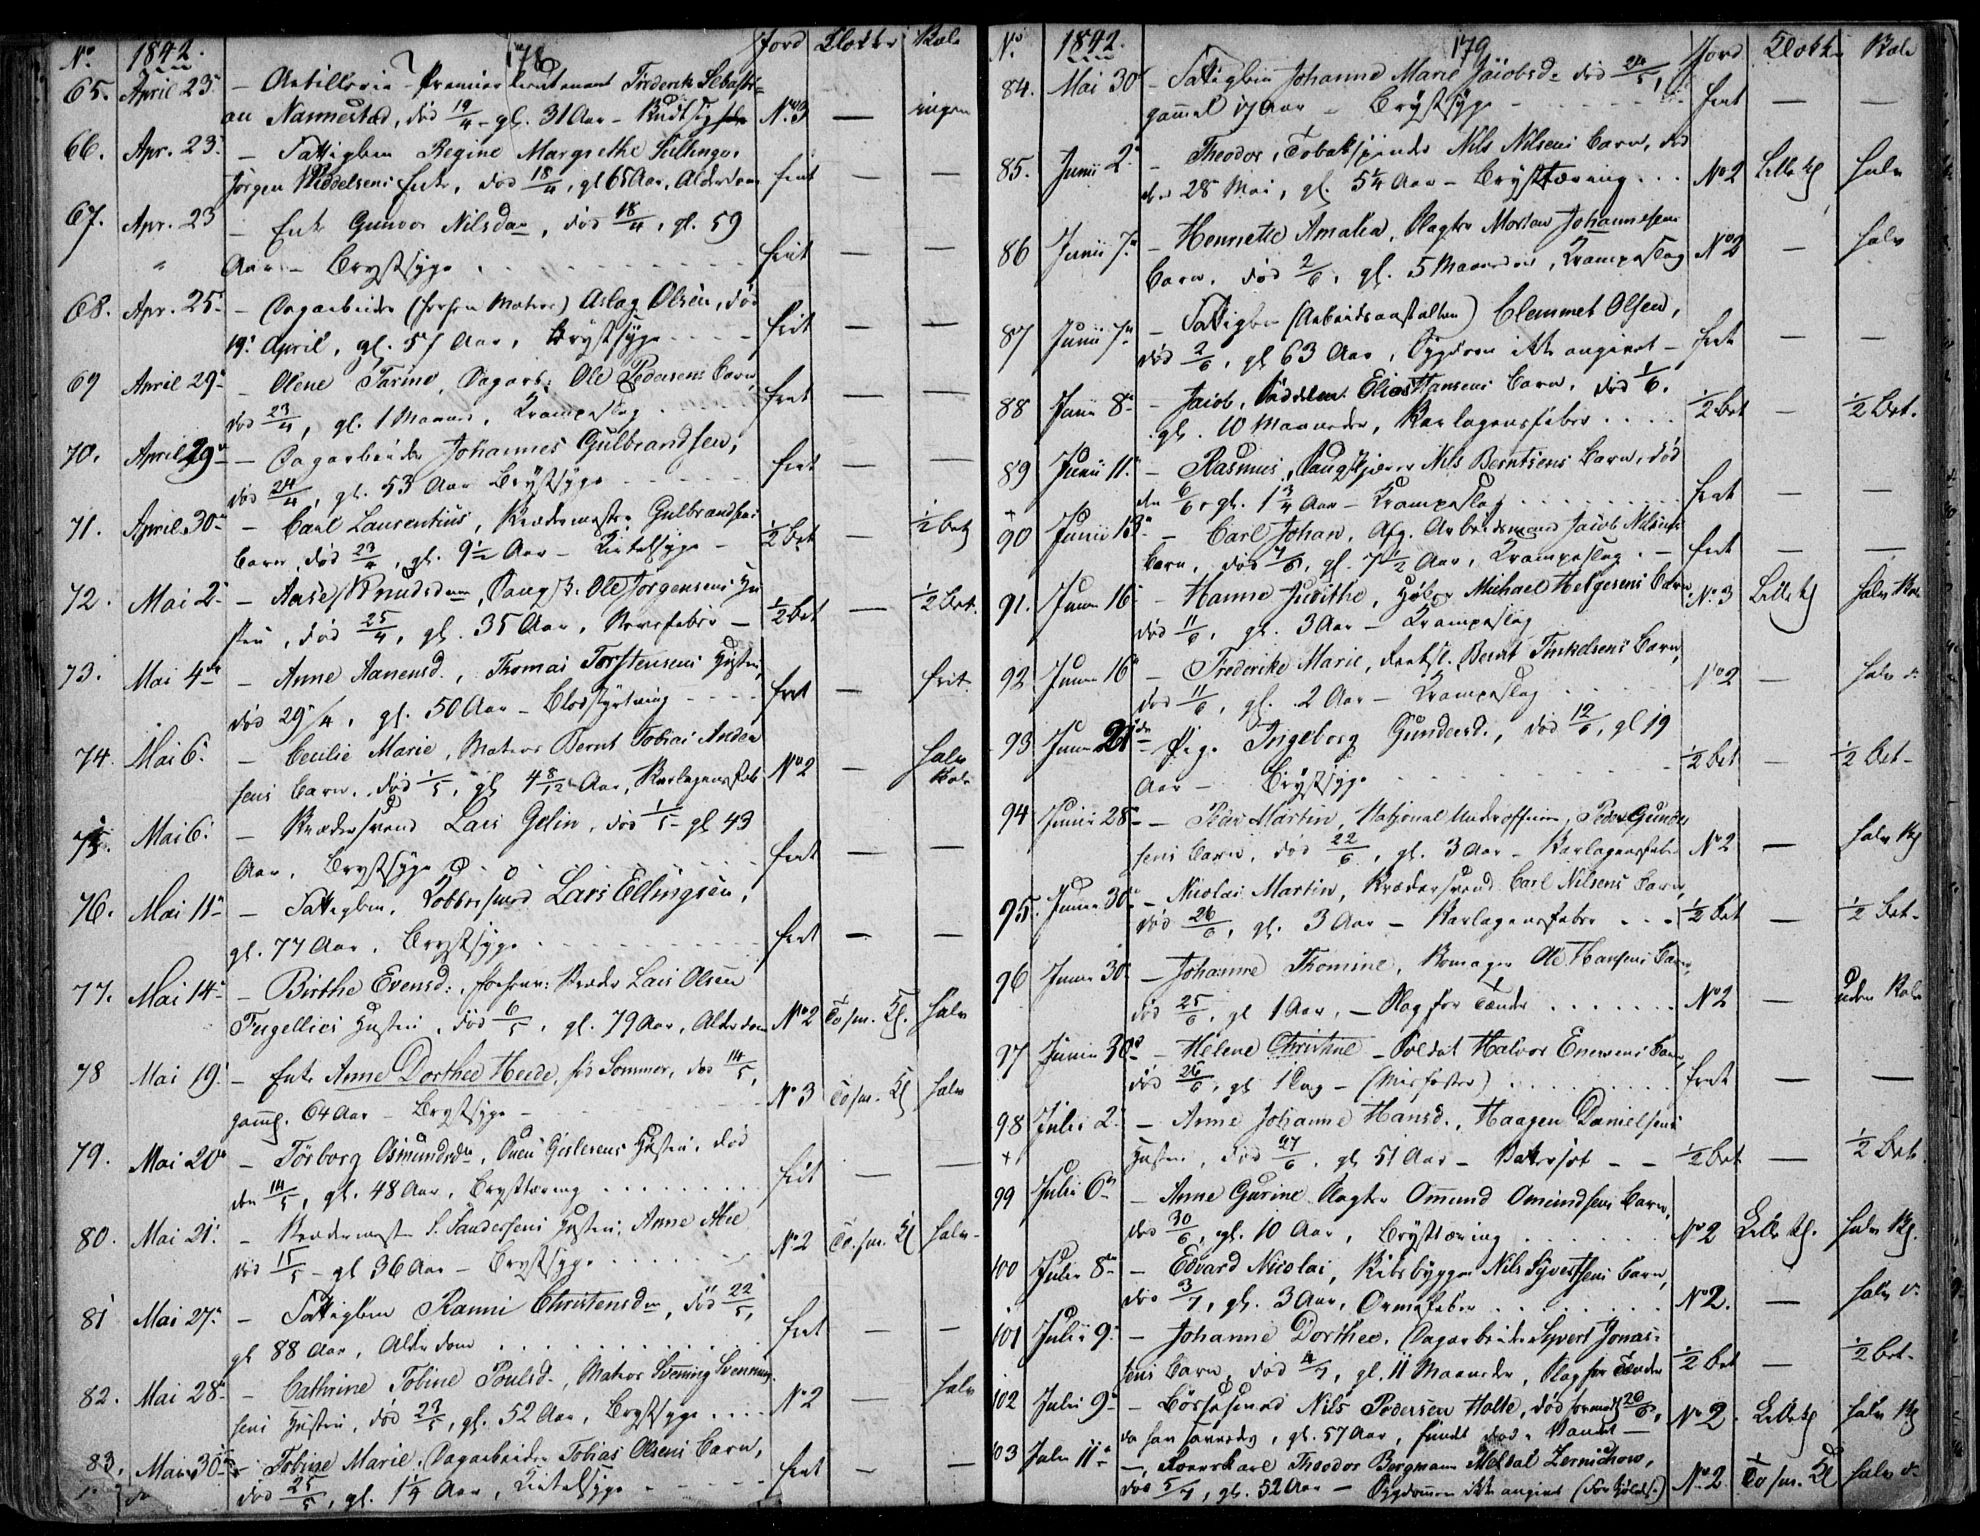 No 1842. 178 Jord Klokke Bale
65. April 23 – Artillerie-Premierlieutenant Frederik Sebasti-
an Nannestad, død 19/4 – gl. 31 Aar – No 3 — ingen
66. Apr. 23 – Fattiglem Regine Margrethe
Jørgen Enke, død 18/4, gl 65 Aar, Alderdom frit — —
67. Apr. 23 – Enke Gunvor Nilsdr, død 18/4, gl. 59
Aar – Brystsyge frit — —
68. Apr. 25 – Dagarbeider (forhen Matros) Aslag Olsen, død
19 April, gl. 57 Aar, Brystsyge frit — —
69 April 29 – Olene Tarine, Dagarb: Ole Pedersens Barn,
død 23/4, gl. 1 Maaned, Krampeslag frit — —
70. April 29 – Dagarbeider Johannes Gulbrandsen,
død 24/4, gl. 53 Aar Brystsyge frit — —
71. April 30 – Carl Laurentius, Gulbrandsens
Barn, død 23/4, gl. 9½ Aar – ½ Bet — ½ bet
72. Mai 2 – Aase Knudsdr, Ole Jørgensens Hu-
stru, død 25/4, gl. 35 Aar, Nervefeber – ½ bet — ½ Bet.
73. Mai 4 – Anne Aanensd., Thomas Torstensens Hustru,
død 29/4, gl. 50 Aar – Blodstyrtning frit — frit
74. Mai 6 – Cecilie Marie, Matros Bernt Tobias Ander-
sens Barn, død 1/5, gl 4 8/12 Aar, Skarlagensfeb. No 2 — halv Bale
75. Mai 6 – Skrædersvend Lars Gelin, død 1/5 – gl 43
Aar, Brystsyge frit — —
76. Mai 11 – Fattiglem, Kobbersmed Lars Ellingsen,
gl. 77 Aar, Brystsyge frit — —
77. Mai 14 – Birthe Evensd., forhenv: Lars Olsen
Hustru, død 6/5, gl. 79 Aar, Alderdom No 2 To sm. Kl. halv
78 Mai 19 – Enke Anne Dorthea Heede, f: Sommer, død 14/5,
gaml. 64 Aar – Brystsyge – No 3 To sm. Kl halv
79. Mai 20 – Torborg Osmundsdr, Gislesens Hustru, død
den 14/5, gl. 48 Aar, Brysttæring frit — —
80. Mai 21 – Skrædermester S. Sandersens Hustru, Anne
død 15/5 – gl 36 Aar – Brystsyge No 2 To. sm. Kl halv
81 Mai 27 – Fattiglem Ranni Christensdr, død 22/5,
gl 88 Aar, Alderdom frit — —
82. Mai 28 – Cathrine Tobine Poulsd., Matros Svenning Svenning-
sens Hustru, død 23/5, gl. 52 Aar, Brystsyge No 2 — halv
83. Mai 30 – Tobine Marie, Dagarbeider Tobias Olsens Barn,
død 25/5, gl. 1¼ Aar, frit — —
No. 1842. 179 Jord Klokke Bale
84. Mai 30 – Fattiglem Johanne Marie Jacobsd. død 24/5,
gammel 17 Aar – Brystsyge frit — —
85. Junii 2 – Theodor, Tobakspinder Nils Nilsens Barn, død
den 28 Mai, gl. 5¼ Aar – Brysttæring No 2 Lille Kl halv
86 Junii 7 – Henriette Amalia, Slagter Morten Johannesens
Barn, død 2/6, gl. 5 Maaneder, Krampeslag No 2 — halv
87 Junii 7 – Fattiglem (Arbeidsanstalten) Clemmet Olsen,
død 2/6, gl 63 Aar, Sygdom ikke angivet – frit — —
88 Junii 8 – Jacob, Elias Hansens Barn, død 1/6.
gl. 10 Maaneder, Skarlagensfeber ½ Bet — ½ Bet.
89 Junii 11 – Rasmus, Nils Berntsens Barn, død
den 6/6, gl. 1¾ Aar – Krampeslag frit — —
90 Junii 13 – Carl Johan, Afg. Arbeidsmand Jacob Nilsens
Barn, død 7/6, gl. 7½ Aar, Krampeslag – frit — —
91. Junii 16 – Hanne Judithe, Michael Helgesens Barn No 3 Lille Kl halv Bale
død 11/6, gl. 3 Aar – Krampeslag
92 Junii 16 – Frederikke Marie, Bernt Barn,
død 11/6, gl. 2 Aar – Krampeslag No 2 — halv do
93 Junii 21 – Pige Ingeborg Gundersd., død 12/6, gl 19
Aar – Brystsyge ½ Bet — ½ Bet –
94 Junii 28 – Martin, National Underofficer, Peder Gunder-
sens Barn, død 22/6, gl. 3 Aar – Skarlagensfeber No 2 — halv Bl
95. Junii 30 – Nicolai Martin, Skrædersvend Carl Nilsens Barn,
død 26/6, gl. 3 Aar – Skarlagensfeber ½ Bet — ½ Bet –
96 Junii 30 – Johanne Thomine, Skomager Ole Hansens Barn,
død 25/6, gl 1 Aar, – Slag for Tænder No 2 — uden Bale
97 Junii 30 – Helene Christine – Soldat Halvor Barn,
død 26/6, gl 1 Dag – (Misfoster) frit — —
98 Julii 2 – Anne Johanne Hansd., Haagen Danielsens
Hustru, død 27/6, gl 51 Aar – Vatersot – – ½ Bet — ½ Bet.
99 Julii 6 – Anne Gurine, Slagter Omund Omundsens Barn,
død 30/6, gl. 10 Aar, Brysttæring No 2 Lille Kl. halv Bl.
100 Julii 8 – Edvard Nicolai, Skibsbygger Nils Syvertsens Barn,
død 3/7, gl. 3 Aar, Ormefeber No 2. — halv do
101 Julii 9 – Johanne Dorthea, Dagarbeider Syvert Jonas-
sens Barn, død 4/7, gl. 11 Maaneder, Slag for Tænder ½ Bet — ½ bet.
102 Julii 9 – Børsesmed Nils Pedersen Holte, død formod. 26/6,
da han savnedes, gl. 57 Aar, fundet død i Vandet – No 2. Lille Kl halv Bl
103 Julii 11 – Theodor Bergmann Meldal Zernichow,
død 5/7, gl. 52 Aar – Sygdommen ikke angivet No 2 To sm. Kl halv do